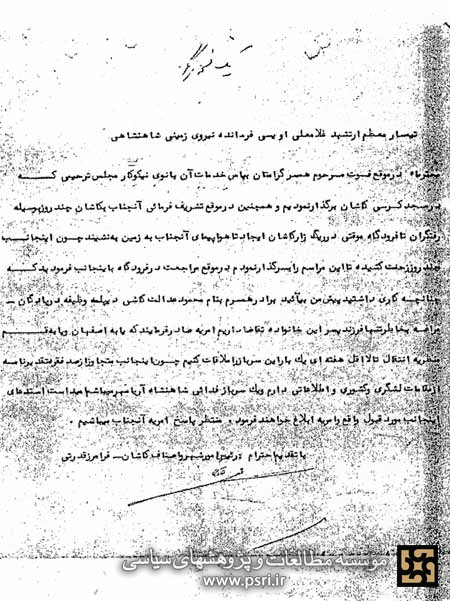 تیمسار معظم ارتشبد غلامعلی اویسی فرمانده نیروی زمینی شاهنشاهی
محترما" درموقع فوت مرحوم همسر گرامتان بپاس خدمات آن بانوی نیکوکار مجلس ترحیمی که
درمسجد کرسی کاشان برگذارنمودیم و همچنین درموقع تشریف فرمائی آنجناب بکاشان چند روزبوسیله
رفتگران تا فرودگاه موقتی درریگ زارکاشان ایجاد تا هواپیمای آنجناب به زمین به نشیند چون اینجانب
چند روززحمت کشیده تا این مراسم را بسرگذارنمودم درموقع مراجعت درفرودگاه باینجانب فرمودید که
چنانچه کاری داشتید پیش من بیائید برادرهمسرم بنام محمود عدالت کاشی دیپلمه وظیفه درپادگان –
مراغه بخاطرتنها فرزند پسر این خانواده تقاضا داریم امریه صادرفرمایند که یا به اصفهان ویا به قم
منظریه انتقال تا اقل هفته ای یک بار این سرباز را ملاقات کنیم چون اینجانب متجاوزازصد فقره تقدیرنامه
ازمقامات لشگری وکشوری و اطلاعاتی دارم ویک سرباز فدائی شاهنشاه آریامهر میباشم امید است استدعای
اینجانب مورد قبول واقع وامریه ابلاغ خواهند فرمود، منتظر پاسخ امریه آنجناب میباشیم .
با تقدیم احترام
کاشان – فرامرز قدرتی
موسسه مطالعات و پژوهشهای سیاسی
www.psri.ir